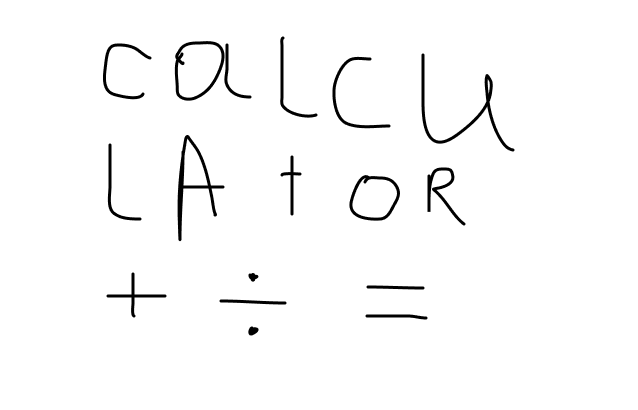 calcu
LAtOR
+ ÷ =